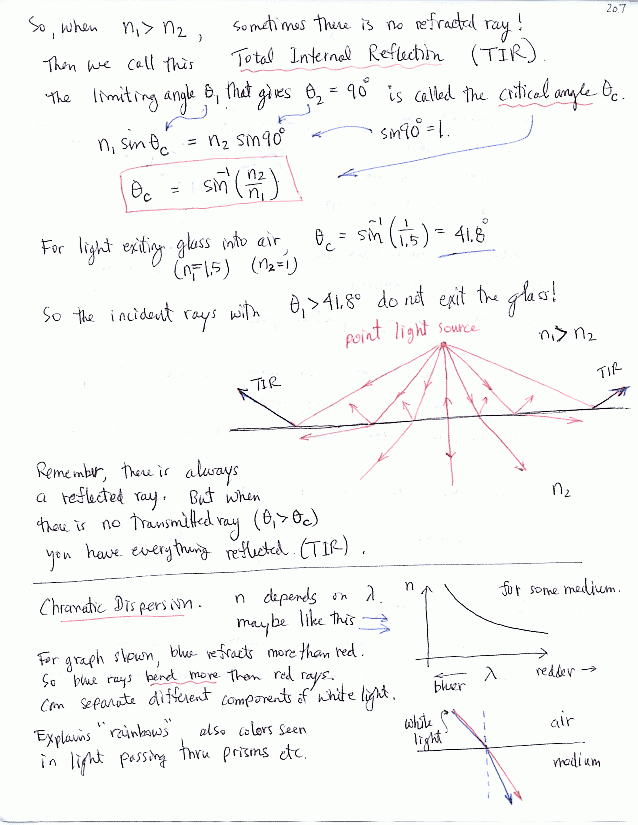 207
So, when n₁ > n₂, sometimes there is no refracted ray!
Then we call this Total Internal Reflection (TIR).
The limiting angle θ₁ that gives θ₂ = 90° is called the critical angle θc.
n₁ sin θc = n₂ sin 90° sin 90° = 1.
θc = sin⁻¹(n₂/n₁)
For light exiting glass into air, θc = sin⁻¹(1/1.5) = 41.8°
(n₁=1.5) (n₂=1)
So the incident rays with θ₁ > 41.8° do not exit the glass!
point light source n₁ > n₂
TIR TIR
Remember, there is always
a reflected ray. But when
there is no transmitted ray (θ₁ > θc)
you have everything reflected (TIR).
n₂
Chromatic Dispersion. n depends on λ.
maybe like this
n for some medium.
bluer λ redder →
For graph shown, blue refracts more than red.
So blue rays bend more than red rays.
Can separate different components of white light.
Explains "rainbows", also colors seen
in light passing thru prisms etc.
white
light
air
medium